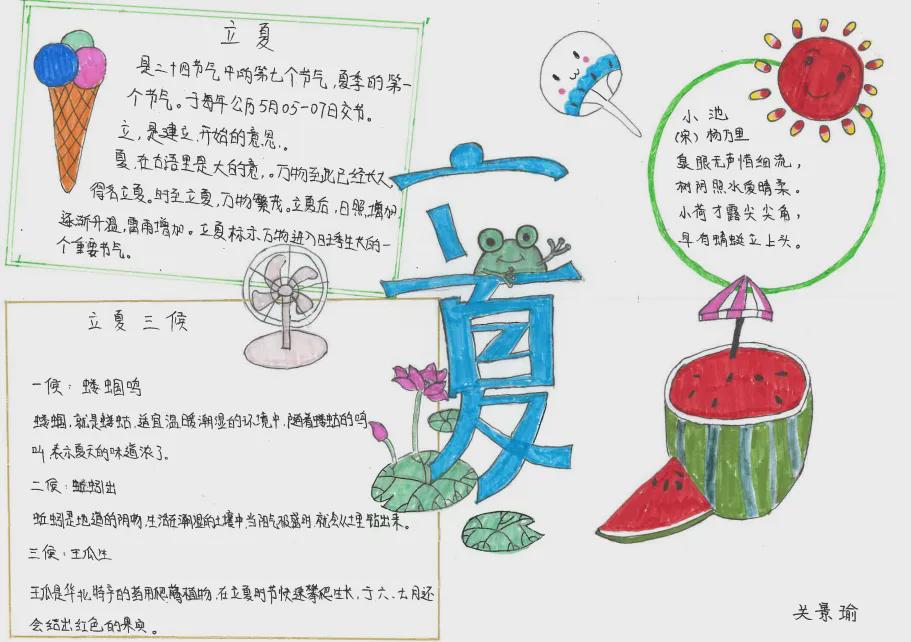 立夏
是二十四节气中的第七个节气,夏季的第一
个节气。于每年公历5月05-07日交节。
立,是建立,开始的意思,。
夏,在古语里是大的意,。万物至此已经长大,
得名立夏。时至立夏,万物繁茂。立夏后,日照增加,
逐渐升温,雷雨增加。立夏标示万物进入旺季生长的一
个重要节气。
立夏
小池
(宋)杨万里
泉眼无声惜细流,
树阴照水爱晴柔。
小荷才露尖尖角,
早有蜻蜓立上头。
立夏三候
一候:蝼蝈鸣
蝼蝈,就是蝼蛄,适宜温暖潮湿的环境中,随着蝼蛄的鸣
叫表示夏天的味道浓了。
二候:蚯蚓出
蚯蚓是地道的阴物,生活在潮湿的土壤中当阳气极盛时,就会从土里钻出来。
三候:王瓜生
王瓜是华北特产的药用爬藤植物,在立夏时节快速攀爬生长,于六、七月还
会结出红色的果实。
关景瑜